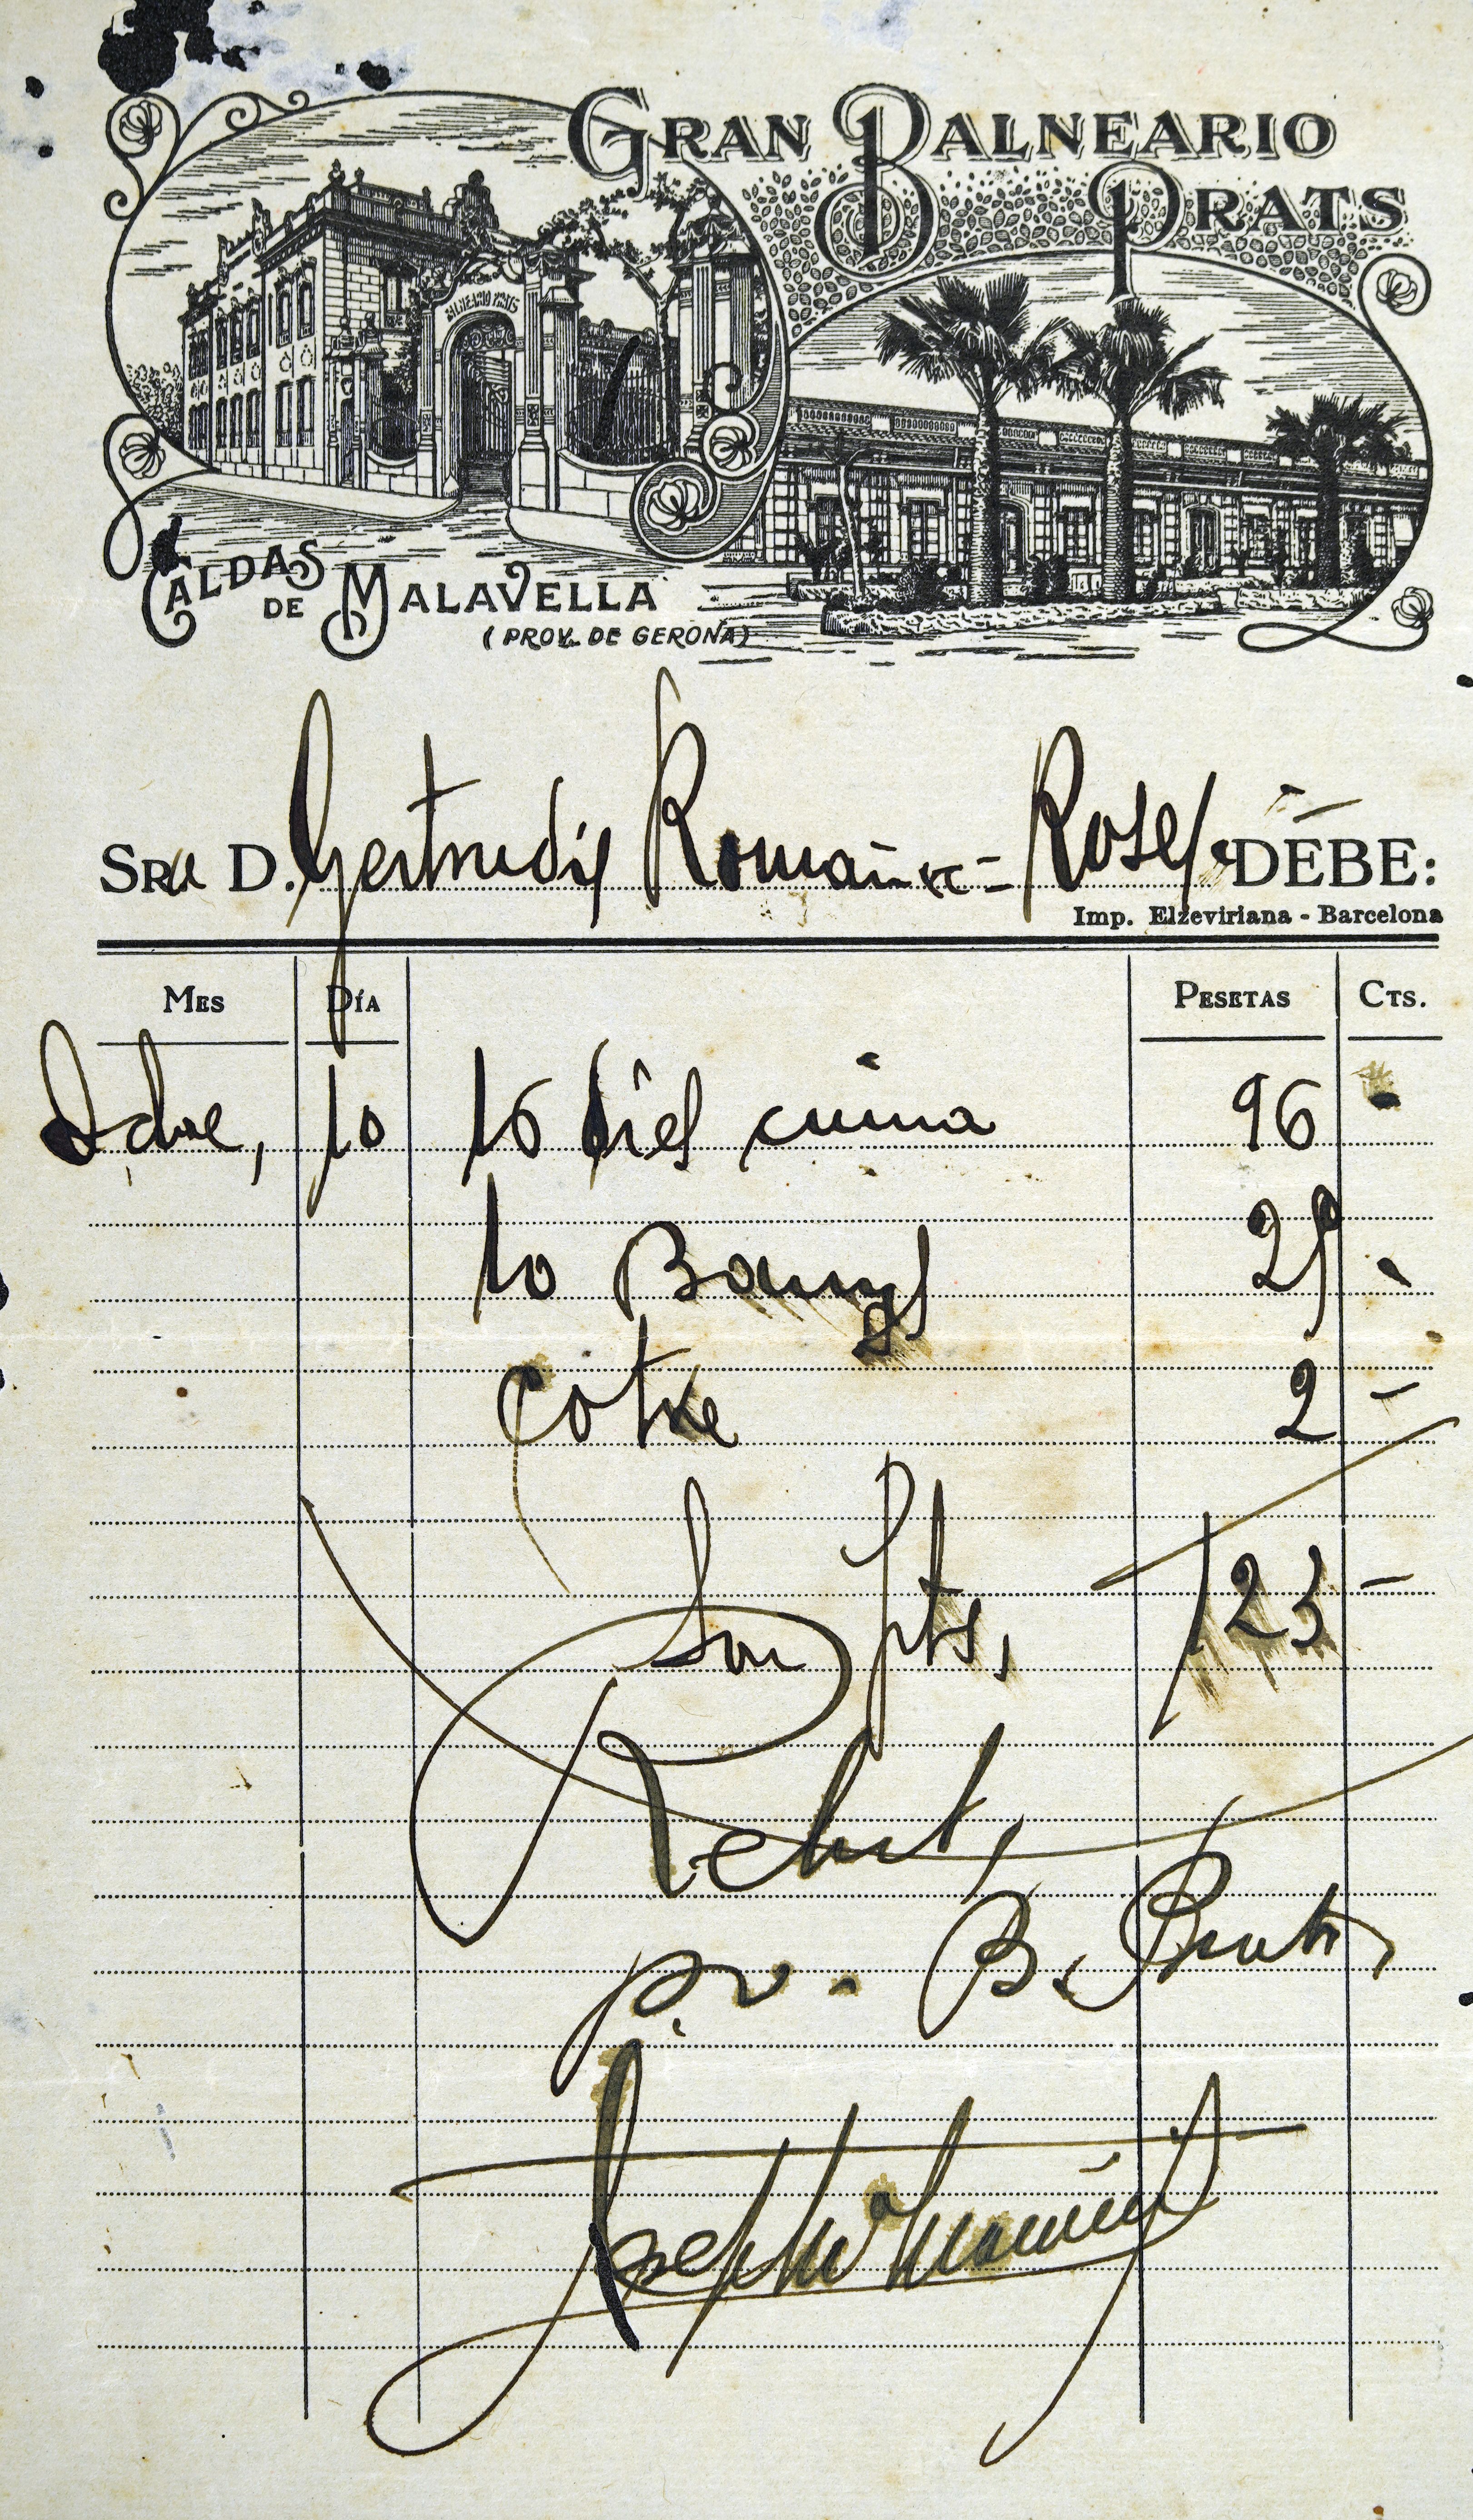 GRAN BALNEARIO
PRATS
BALNEARIO PRATS
CALDAS
DE MALAVELLA
(PROV. DE GERONA)
SRa D. Gertrudis Romañac = Roses DEBE:
Imp. Elzeviriana - Barcelona
MES DÍA PESETAS CTS.
Octbre, 10 16 cuina 96
10 Banys 25 -
Cotxe 2 -
Son pts, 123 -
Rebut,
p.o. B. Prats,
Joseph